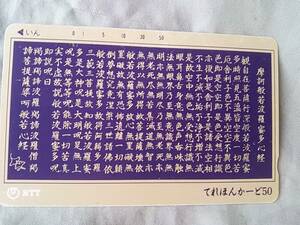 ◀いれ 0 1 10 30 50
摩訶般若波羅蜜多心経
観自在菩薩行深般若波羅蜜
多時照見五蘊皆空度一切苦
厄舎利子色不異空空不異色
色即是空空即是色受想行識
亦復如是舎利子是諸法空相
不生不滅不垢不浄不増不減
是故空中無色無受想行識無
眼耳鼻舌身意無色声香味触
法無眼界乃至無意識界無無
明亦無無明尽乃至無老死亦
無老死尽無苦集滅道無智亦
無得以無所得故菩提薩埵依
般若波羅蜜多故心無罣礙無
罣礙故無有恐怖遠離一切顛
倒夢想究竟涅槃三世諸仏依
般若波羅蜜多故得阿耨多羅
三藐三菩提故知般若波羅蜜
多是大神呪是大明呪是無上
呪是無等等呪能除一切苦真
実不虚故説般若波羅蜜多呪
即説呪曰
羯諦羯諦波羅羯諦波羅僧羯
諦菩提薩婆訶般若心経
NTT
てれほんかーど50